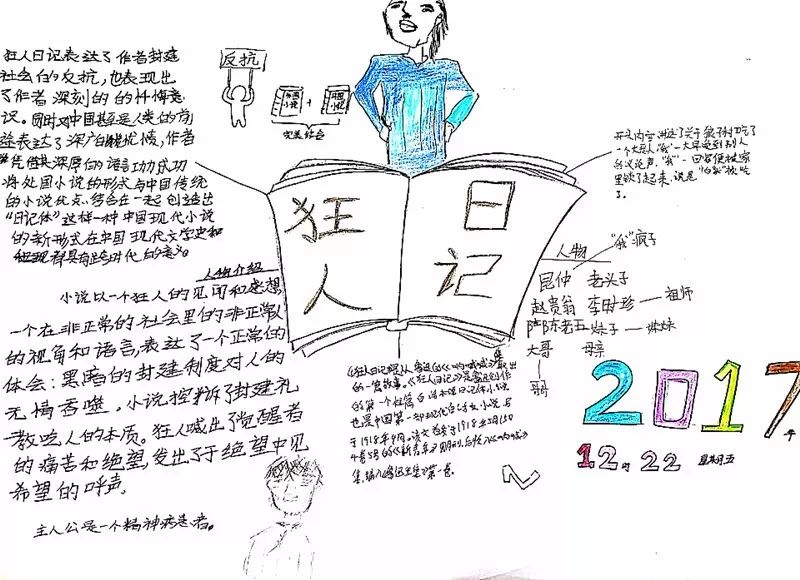 狂人日记表达了作者封建
社会的反抗,也表现出
了作者深刻的的忏悔意
识。同时对中国甚至人类的前
益表达了深广的忧愤,作者
凭借其深厚的语言功力成功
将外国小说的形式与中国传统
的小说优点、结合在一起创造出
“日记体”这样一种中国现代小说
的新形式在中国现代文学史和
都具有跨时代的意义。
反抗
小说
+
小说
完美结合
狂人
日记
开头内容讲述了关于狼子村吃了
一个大恶人“我”一大早受到别人
的议论声.“我”一回家便被家
里锁了起来,说是
了。
人物
“我”疯子
昆仲 老头子
赵贵翁 李时珍——祖师
陈老五 妹子——妹妹
大哥 母亲
哥哥
人物介绍
小说以一个狂人的见闻和感想
一个在非正常的社会里的非正常人
的视角和语言,表达了一个正常的
体会:黑暗的封建制度对人的
无情吞噬。小说控诉了封建礼
教吃人的本质。狂人喊出了觉醒者
的痛苦和绝望,发出了于绝望中见
希望的呼声.
主人公是一个精神病患者。
的一篇故事。《狂人日记》是
的第一个短篇白话文日记体小说
也是中国第一部现代白话文小说
于1918年
集,编入鲁迅全集第一卷。
2017年
12月22 星期五